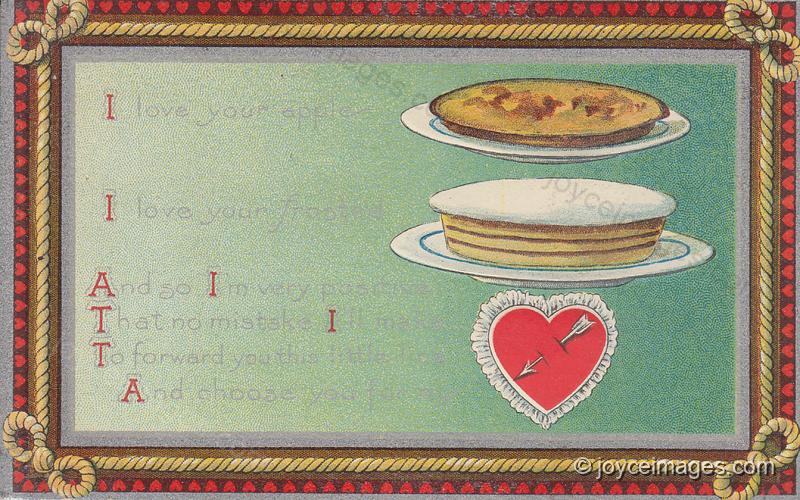 I love your apple
I love your frosted
And so I'm very positive
That no mistake I'll make
To forward you this little
And choose you for my
© joyceimages.com
joyceimages
images.c